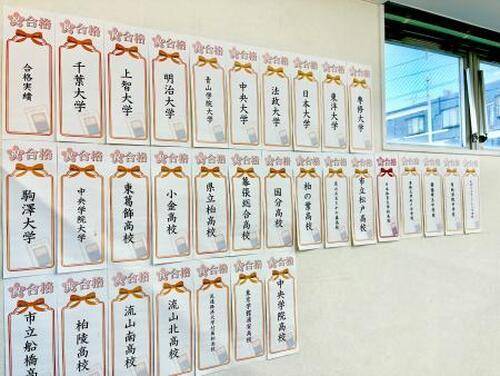 合格
合格実績
合格
千葉大学
合格
上智大学
合格
明治大学
合格
青山学院大学
合格
中央大学
合格
法政大学
合格
日本大学
合格
東洋大学
合格
専修大学
合格
駒澤大学
合格
中央学院大学
合格
東葛飾高校
合格
小金高校
合格
県立柏高校
合格
幕張総合高校
合格
国分高校
合格
柏の葉高校
合格
合格
市立松戸高校
合格
合格
合格
合格
合格
合格
市立船橋高
合格
柏陵高校
合格
流山南高校
合格
流山北高校
合格
合格
東京学館浦安高校
合格
中央学院高校